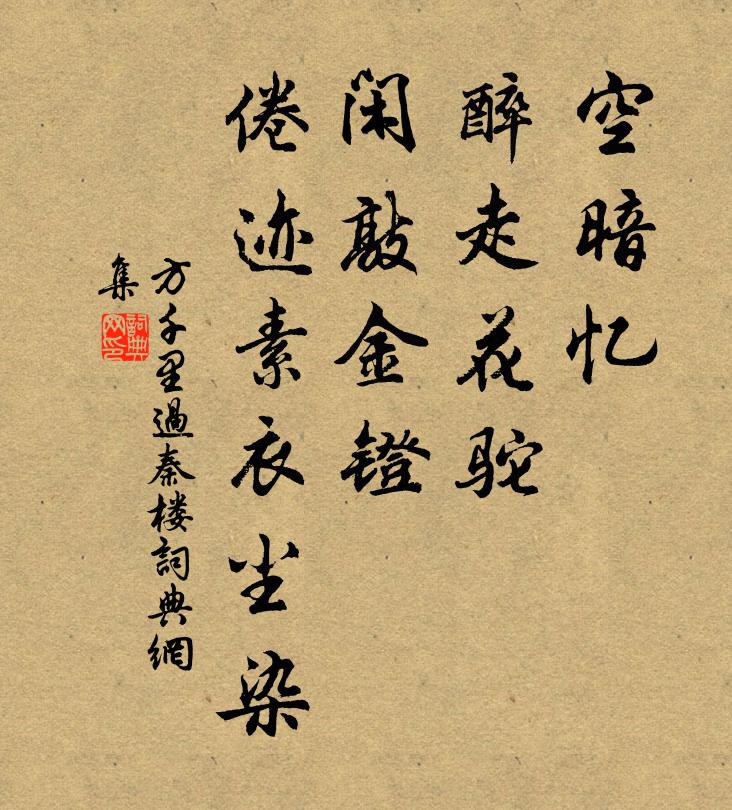 空暗忆
醉走花驼
闲敲金镫
倦迹素衣尘染
方千里過秦楼詞典網
集
詞典
网印